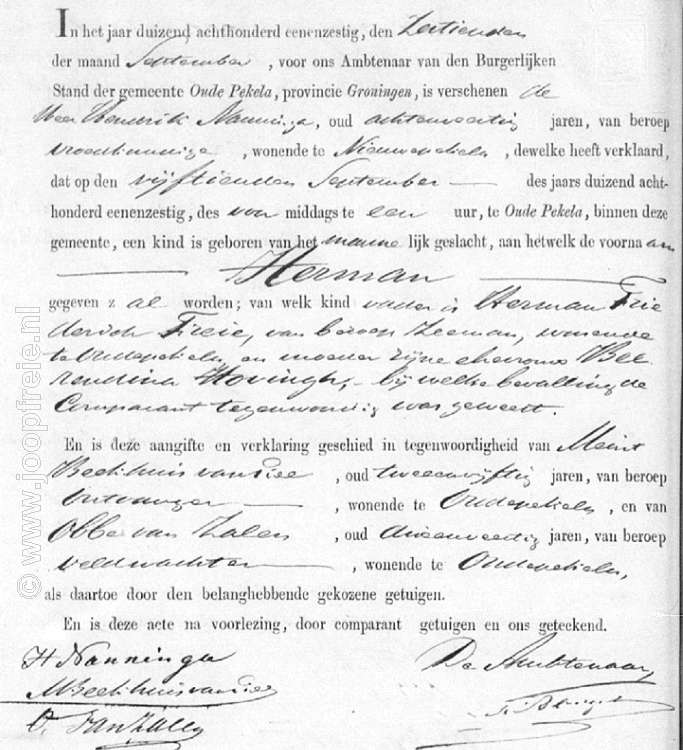 In het jaar duizend achthonderd eenenzestig, den Zestienden
der maand September, voor ons Ambtenaar van den Burgerlijken
Stand der gemeente Oude Pekela, provincie Groningen, is verschenen de
Heer Hendrik Nanninga, oud achtenveertig jaren, van beroep
, wonende te Nieuwepekela, dewelke heeft verklaard,
dat op den vijftienden September des jaars duizend acht-
honderd eenenzestig, des voor middags te een uur, te Oude Pekela, binnen deze
gemeente, een kind is geboren van het manne lijk geslacht, aan hetwelk de voorna am
Herman
gegeven z al worden; van welk kind vader is Herman Frie
derich Freie, van beroep Zeeman, wonende
te Oudepekela, en moeder zijne ehevrouw Bee
rendina Hovingh, bij welke bevalling de
Comparant tegenwoordig was geweest.
En is deze aangifte en verklaring geschied in tegenwoordigheid van Meint
Beekhuis van , oud tweeenvijftig jaren, van beroep
Ontvanger, wonende te Oudepekela, en van
Obbe van Zalen, oud drieenveertig jaren, van beroep
veldwachter, wonende te Oudepekela,
als daartoe door den belanghebbende gekozene getuigen.
En is deze acte na voorlezing, door comparant getuigen en ons geteekend.
H Nanninga
De Ambtenaar,
MBeekhuis van
O. van
© www.joopfreie.nl